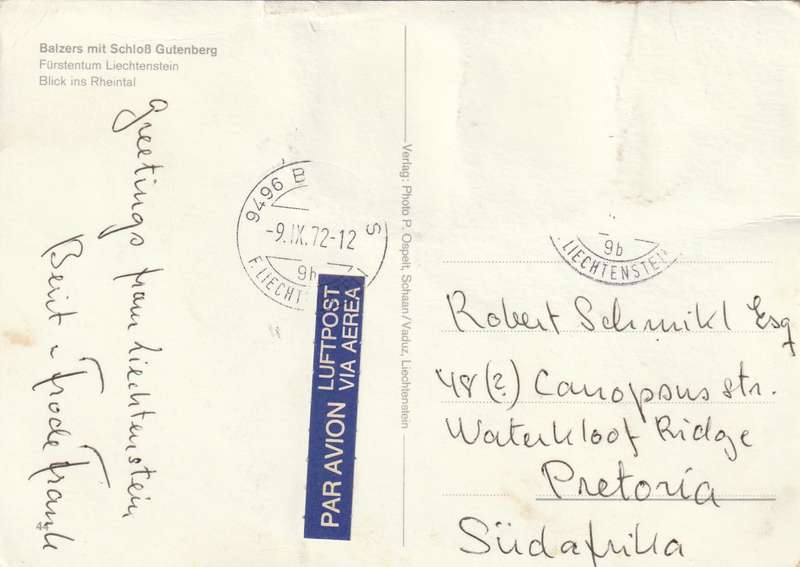 Balzers mit Schloß Gutenberg
Fürstentum Liechtenstein
Blick ins Rheintal
Greetings from Liechtenstein
Berit Frode Frank
44
9496 B S
-9.IX.72-12
9b
F.LIECHT
PAR AVION LUFTPOST
VIA AEREA
Verlag: Photo P. Ospelt, Schaan/Vaduz, Liechtenstein
9b
LIECHTENSTEIN
Robert Schmikl Esq
48(?) Canopsus str.
Waterkloof Ridge
Pretoria
Südafrika